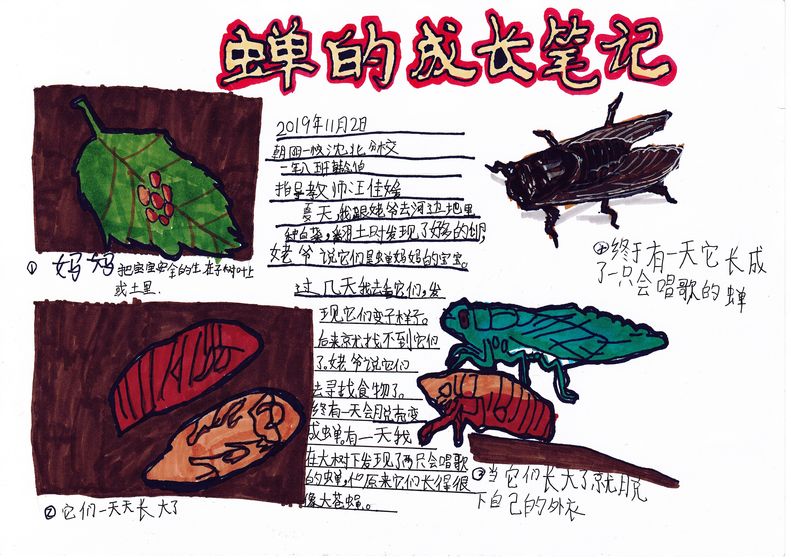 蝉的成长笔记
2019年11月2日
朝阳一校沈北分校
一年八班
指导教师汪佳
夏天,我跟姥爷去河边地里
种白菜,翻土时发现了好多的卵,
姥爷说它们是蝉妈妈的宝宝。
过几天我去看它们,发
现它们变了样子。
后来就找不到它们
了。姥爷说它们
去寻找食物了。
终有一天会脱壳变
成蝉。有一天我
在大树下发现了两只会唱歌
的蝉,原来它们长得很
像大苍蝇。
①妈妈把宝宝安全的生在树叶上
或土里.
②它们一天天长大了
③当它们长大了就脱
下自己的外衣
④终于有一天它长成
了一只会唱歌的蝉